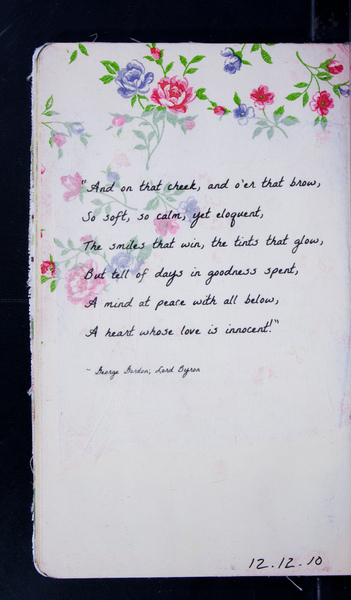 "And on that cheek, and o'er that brow,
So soft, so calm, yet eloquent,
The smiles that win, the tints that glow,
But tell of days in goodness spent,
A mind at peace with all below,
A heart whose love is innocent!"
~ George Gordon, Lord Byron
12.12.10